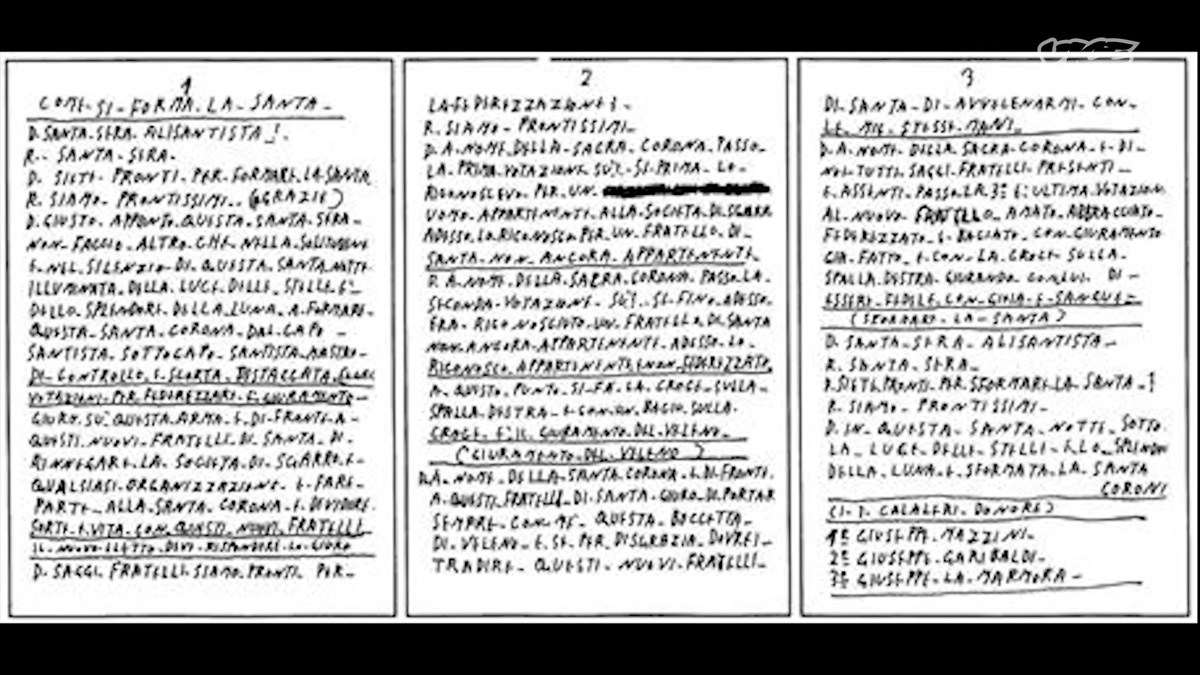 VICE
1
COME-SI-FORMA-LA-SANTA-
D. SANTA-SERA-ALISANTISTA-!-
R-- SANTA-SERA-
D. SIETE-PRONTI-PER-FORMARE-LA-SANTA
R. SIAMO-PRONTISSIMI-(GRAZIE)
D. GIUSTO-APPONTO-QUESTA-SANTA-SERA-
NON-FACCIO-ALTRO-CHE-NELLA-SOLITUDENE
E-NEL-SILENZIO-DI-QUESTA-SANTA-NOTTE
ILLUMINATA-DELLA-LUCE-DELLE-STELLE-E-
DELLO-SPLENDORE-DELLA-LUNA-A-FORMARE-
QUESTA-SANTA-CORONA-DAL-CAPO-
SANTISTA-SOTTOCAPO-SANTISTA-MASTRO-
DI-CONTROLLO-E-SCORTA-DISTACCATA
VOTAZIONI-PER-FEDEREZZARE-E-GIURAMENTO-
GIURO-SU-QUESTA-ARMA-E-DI-FRONTE-A-
QUESTI-NUOVI-FRATELLI-DI-SANTA-DI-
RINNEGARE-LA-SOCIETA-DI-SGARRO-E-
QUALSIASI-ORGANIZZAZIONE-E-FARE-
PARTE-ALLA-SANTA-CORONA-E-DEVIDERE-
SORTE-E-VITA-CON-QUESTI-NUOVI-FRATELLI
IL-NUOVO-ELETTO-DEVE-RISPONDERE-LO-GIURO
D. SAGGI-FRATELLI-SIAMO-PRONTI-PER-
2
LA-FEDEREZZAZIONE?-
R. SIAMO-PRONTISSIMI-
D. A-NOME-DELLA-SACRA-CORONA-PASSO-
LA-PRIMA-VOTAZIONE-SU-SI-PRIMA-LO-
RICONOSCEVO-PER-UN-
UOMO-APPARTENENTE-ALLA-SOCIETA-DI-SGARR
ADESSO-LO-RICONOSCO-PER-UN-FRATELLO-DI-
SANTA-NON-ANCORA-APPARTENENTE
D. A-NOME-DELLA-SACRA-CORONA-PASSO-LA-
SECONDA-VOTAZIONE-SU-SE-FINO-ADESSO-
ERA-RICONOSCIUTO-UN-FRATELLO-DI-SANTA
NON-ANCORA-APPARTENENTE-ADESSO-LO-
RICONOSCO-APPARTENENTE-NON-FIDEREZZATO
A-QUESTO-PUNTO-SI-FA-LA-CROCE-SULLA-
SPALLA-DESTRA-E-CON-UN-BACIO-SULLA-
CROCE-E-IL-GIURAMENTO-DEL-VELENO-
(GIURAMENTO-DEL-VELENO)
D. A-NOME-DELLA-SANTA-CORONA-E-DI-FRONTE-
A-QUESTI-FRATELLI-DI-SANTA-GIURO-DI-PORTAR
SEMPRE-CON-ME-QUESTA-BOCCETTA-
DI-VELENO-E-SE-PER-DISGRAZIA-DOVREI-
TRADIRE-QUESTI-NUOVI-FRATELLI-
3
DI-SANTA-DI-AVVELENARMI-CON-
LE-MIE-STESSE-MANI-
D. A-NOME-DELLA-SACRA-CORONA-E-DI-
NOI-TUTTI-SAGGI-FRATELLI-PRESENTI-
E-ASSENTI-PASSO-LA-3ª-E-ULTIMA-VOTAZION
AL-NUOVO-FRATELLO-AMATO-ABBRACCIATO-
FEDEREZZATO-E-BACIATO-CON-GIURAMENTO
GIA-FATTO-E-CON-LA-CROCE-SULLA-
SPALLA-DESTRA-GIURANDO-CON-LUI-DI-
ESSERE-FEDELE-CON-GIOIA-E-SANGUE-
(SFORMARE-LA-SANTA)
D. SANTA-SERA-ALISANTISTA-
R. SANTA-SERA-
D. SIETE-PRONTI-PER-SFORMARE-LA-SANTA-?
R. SIAMO-PRONTISSIMI-
D. IN-QUESTA-SANTA-NOTTE-SOTTO-
LA-LUCE-DELLE-STELLE-E-LO-SPLENDOR
DELLA-LUNA-E-SFORMATA-LA-SANTA
CORONE
(I-3-CALALERI-DONORE)
1º GIUSEPPE-MAZZINI-
2º GIUSEPPE-GARIBALDI-
3º GIUSEPPE-LA-MARMORA-